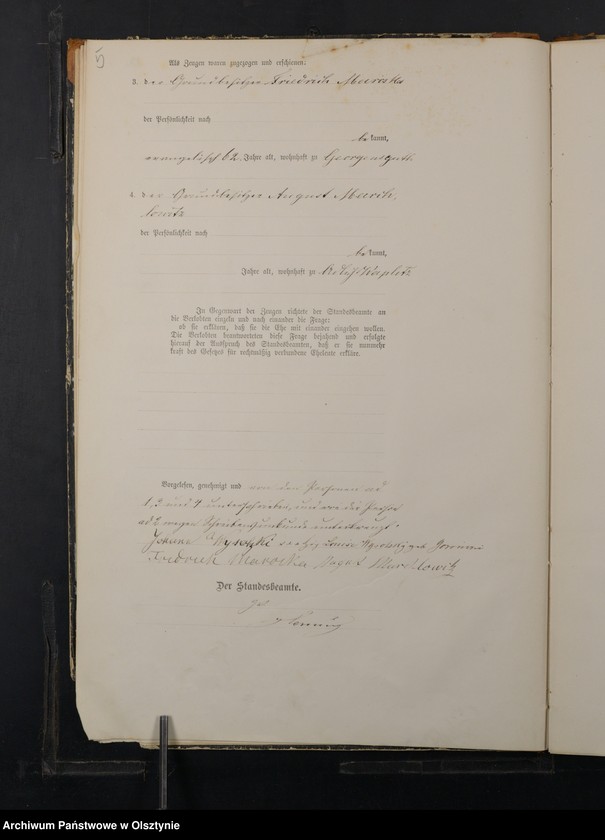 5
Als Zeugen waren zugezogen und erschienen:
3. der Grundbesitzer Friedrich Maroska
der Persönlichkeit nach
be kannt,
evangelisch 62 Jahre alt, wohnhaft zu Georgensguth
4. der Grundbesitzer August March-
lowitz
der Persönlichkeit nach
be kannt,
Jahre alt, wohnhaft zu
In Gegenwart der Zeugen richtete der Standesbeamte an
die Verlobten einzeln und nach einander die Frage:
ob sie erklären, daß sie die Ehe mit einander eingehen wollen.
Die Verlobten beantworteten diese Frage bejahend und erfolgte
hierauf der Ausspruch des Standesbeamten, daß er sie nunmehr
kraft des Gesetzes für rechtmäßig verbundene Eheleute erkläre.
Vorgelesen, genehmigt und von den Personen ad
1, 3 und 4 unterschrieben, und von der Person
ad 2 wegen Schreibensunkunde unterkreuzt.
Johann Wysotzki
Friedrich Maroska August Marchlowitz
Der Standesbeamte.